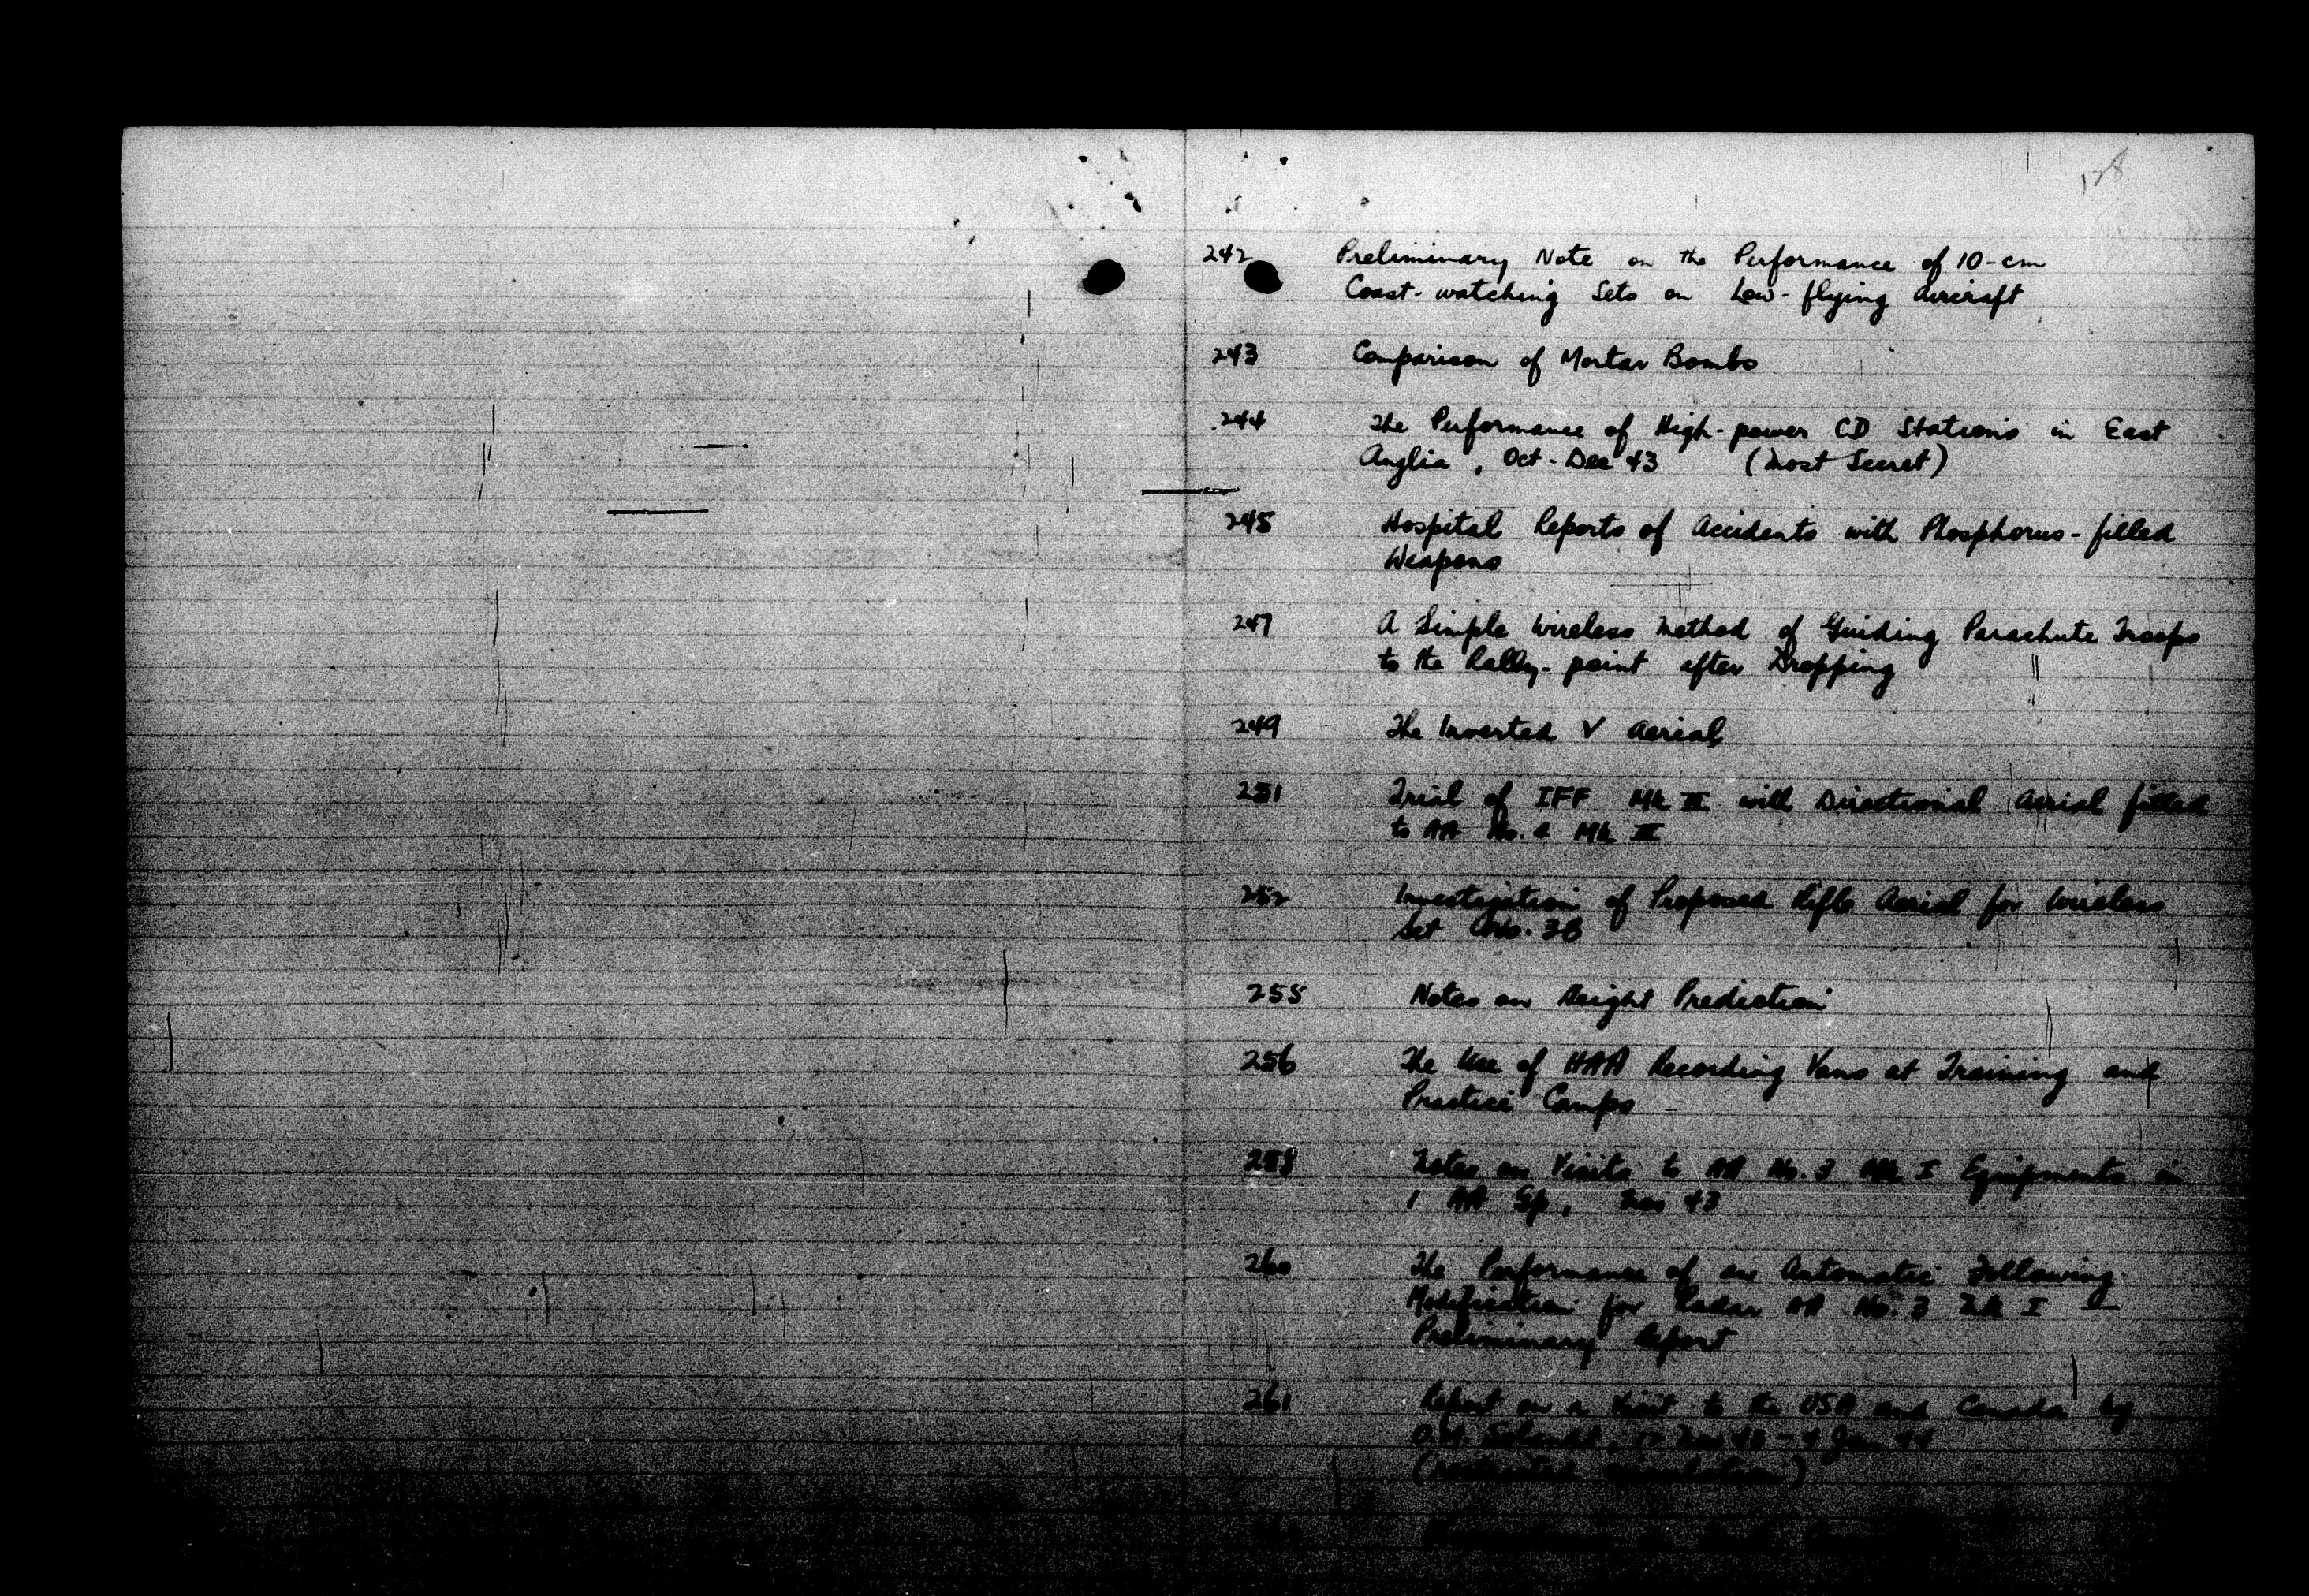 128
242 Preliminary Note on the Performance of 10-cm
Coast-watching Sets on Low-flying Aircraft
243 Comparison of Mortar Bombs
244 The Performance of High-power CD Stations in East
Anglia, Oct-Dec 43 (Most Secret)
245 Hospital Reports of Accidents with Phosphorus-filled
Weapons
247 A Simple Wireless Method of Guiding Parachute Troops
to the Rally-point after Dropping
249 The Inverted V Aerial
251 Trial of IFF Mk III with Directional Aerial fitted
to AA No. 4 Mk III
252 Investigation of Proposed Rifle Aerial for Wireless
Set No. 38
255 Notes on Height Prediction
256 The Use of HAA Recording Vans at Training and
Practice Camps
258 Notes on Visits to AA No. 3 Mk I Equipments in
1 AA Gp, Nov 43
260 The Performance of an Automatic Following
Modification for Radar AA No. 3 Mk I —
Preliminary Report
261 Report on a Visit to the USA and Canada by
Nov 43 - 4 Jan 44